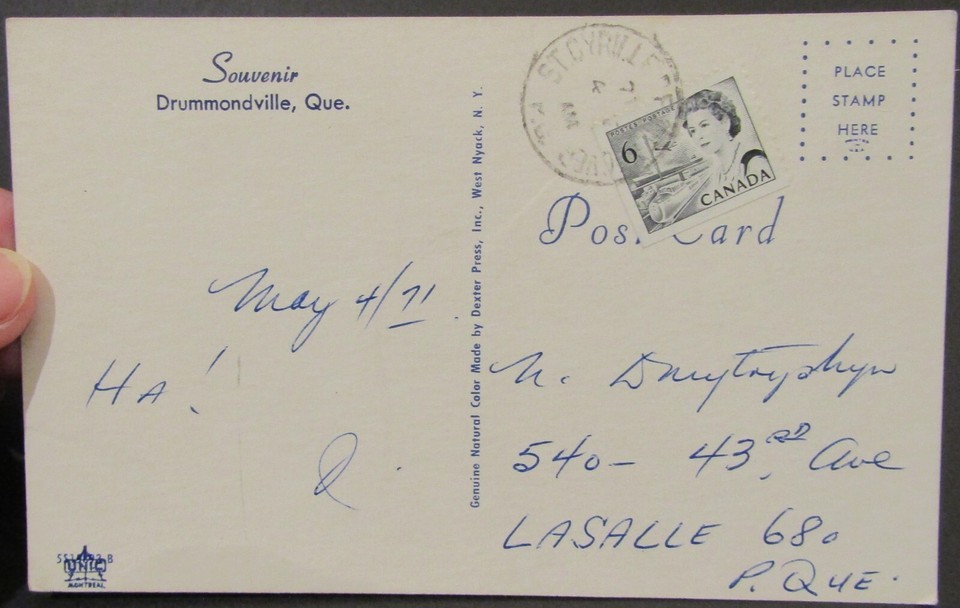 Souvenir
Drummondville, Que.
May 4/71
HA!
Genuine Natural Color Made by Dexter Press, Inc., West Nyack, N. Y.
ST CYRILLE
POSTES POSTAGE
6
CANADA
PLACE
STAMP
HERE
Post Card
N. Dmytryshyn
540- 43RD Ave
LASALLE 680
P. QUE.
UNIC
MONTREAL